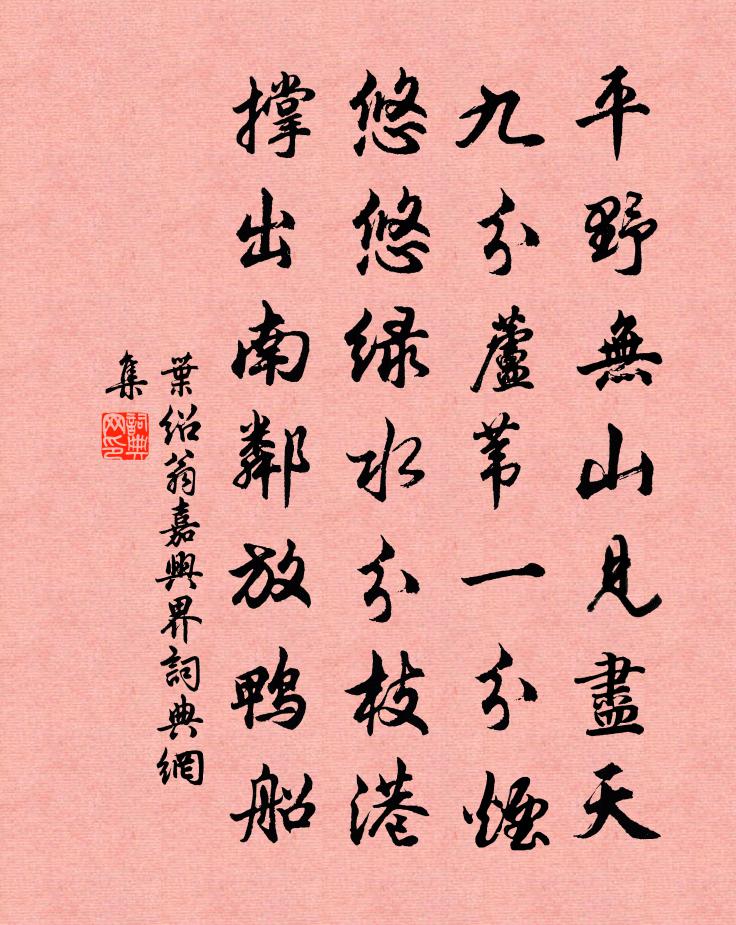 平野無山見盡天
九分蘆葦一分煙
悠悠緑水分枝港
撑出南鄰放鴨船
葉紹翁嘉興界詞典網
集
詞典
网印